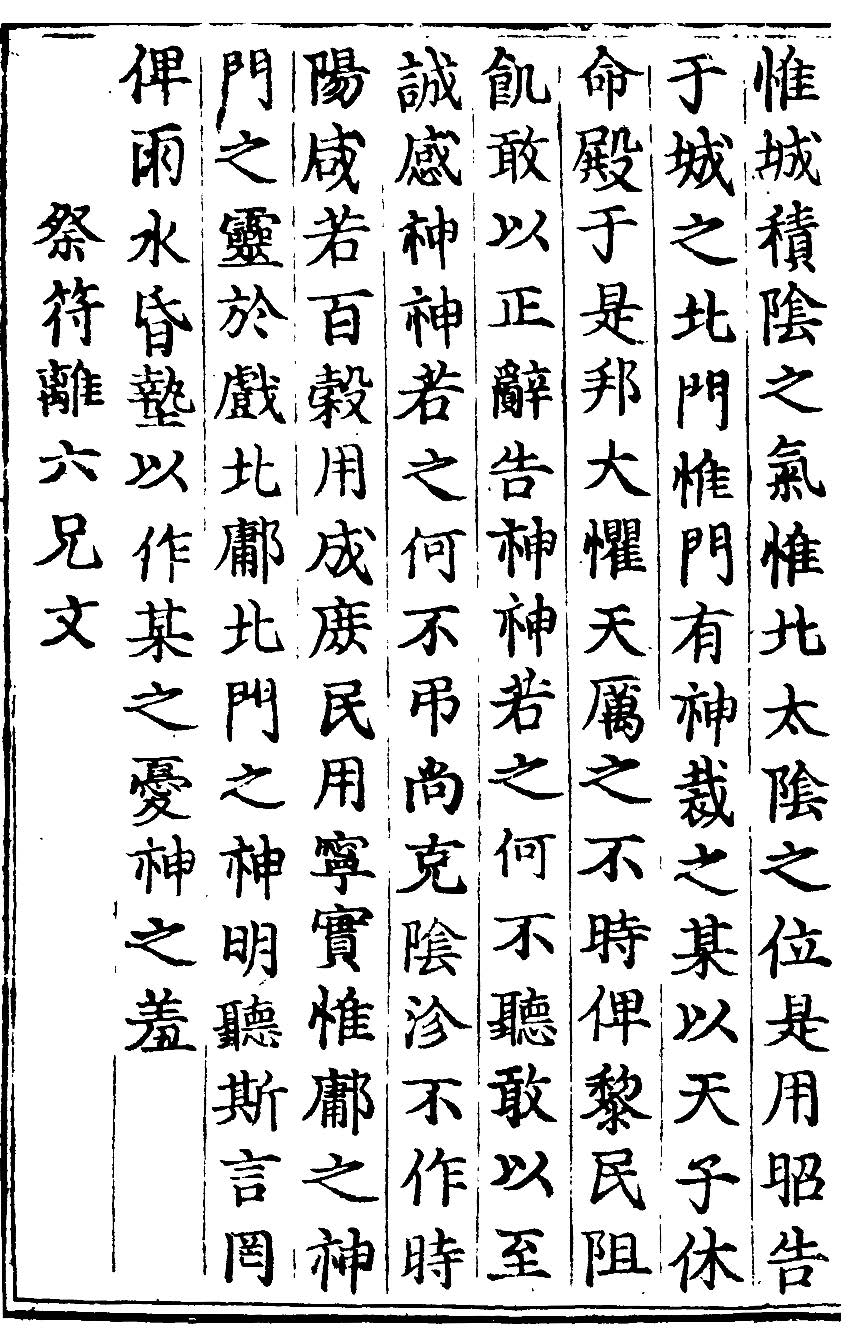 惟城積陰之氣惟北太陰之位是用昭告
于城之北門惟門有神裁之某以天子休
命殿于是邦大懼天厲之不時俾黎民阻
飢敢以正辭告神神若之何不聽敢以至
誠感神神若之何不弔尚克陰沴不作時
陽咸若百穀用成庶民用寧實惟鄘之神
門之靈於戲北鄘北門之神明聽斯言罔
俾雨水昏墊以作某之憂神之羞
祭符離六兄文